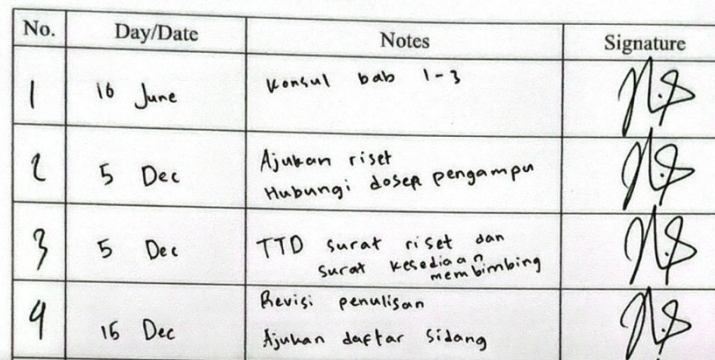 No. Day/Date Notes Signature
1 16 June Konsul bab 1-3
2 5 Dec Ajukan riset
Hubungi dosen pengampu
3 5 Dec TTD surat riset dan
surat kesediaan
membimbing
4 15 Dec Revisi penulisan
Ajukan daftar sidang